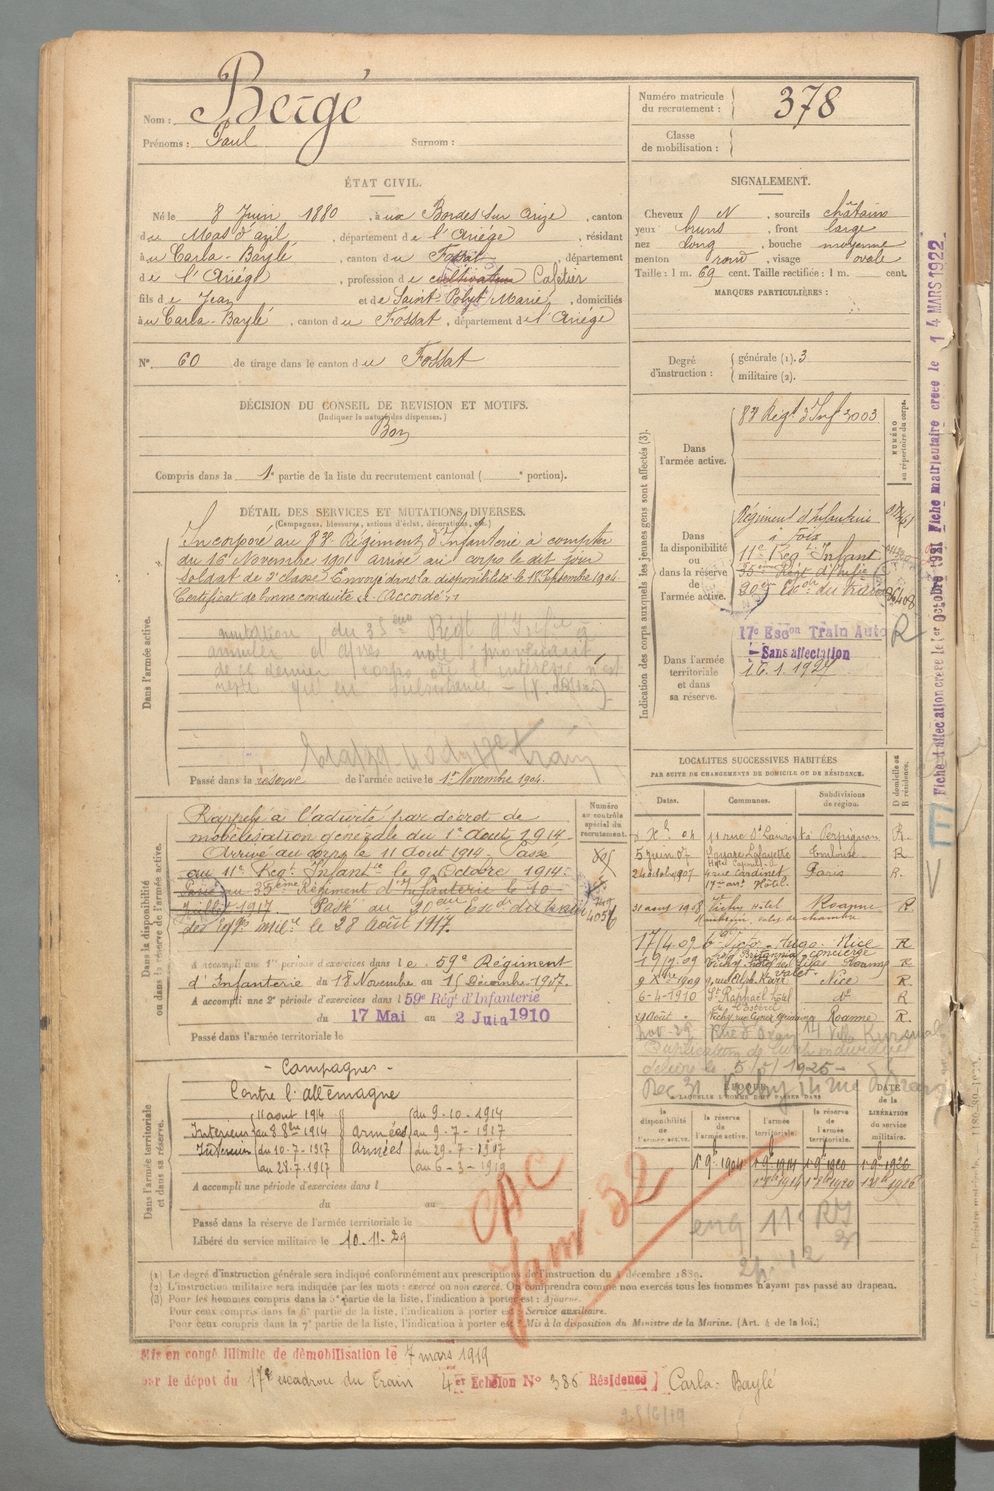 Nom : Bergé
Prénoms : Paul Surnom :
Numéro matricule du recrutement : 378
Classe de mobilisation :
ÉTAT CIVIL.
Né le 8 Juin 1880, à ux Bordes sur Arize, canton
du Mas d'azil, département de l'Ariége, résidant
à u Carla-Baylé, canton du Fossat, département
de l'Ariégé, profession de cultivateur Cafetier
fils de Jean et de Saint-Polyt Marie, domiciliés
à u Carla-Baylé, canton du Fossat, département de l'Ariége
N° 60 de tirage dans le canton du Fossat
SIGNALEMENT.
Cheveux N, sourcils châtains
yeux bruns, front large
nez long, bouche moyenne
menton rond, visage ovale
Taille : 1 m. 69 cent. Taille rectifiée : 1 m. cent.
MARQUES PARTICULIÈRES :
Degré d'instruction : générale (1). 3
militaire (2).
DÉCISION DU CONSEIL DE REVISION ET MOTIFS.
(Indiquer la nature des dispenses.)
Bon
Compris dans la 1e partie de la liste du recrutement cantonal ( e portion).
DÉTAIL DES SERVICES ET MUTATIONS DIVERSES.
(Campagnes, blessures, actions d'éclat, décorations, etc.)
Dans l'armée active.
Incorporé au 83e Régiment d'Infanterie à compter
du 16 Novembre 1901 arrivé au corps le dit jour
Soldat de 2e classe Envoyé dans la disponibilité le 18 Septembre 1904
Certificat de bonne conduite "Accordé"
mutation du 35ème Régt d'Infie
annulée d'après note provenant
de ce dernier corps où l'intéressé n'est
resté qu'en subsistance
Passé dans la réserve de l'armée active le 1er Novembre 1904.
Indication des corps auxquels les jeunes gens sont affectés (3).
NUMÉRO au répertoire du corps.
Dans l'armée active.
83 Régt d'Inf 3003
Dans la disponibilité ou dans la réserve de l'armée active.
Régiment d'Infanterie
à Foix
11e Régt Infant
35ème Régt d'Infie
20e Escon du Train
Dans l'armée territoriale et dans sa réserve.
17e Escon Train Auto R
Sans affectation
16.1.1927
Fiche d'affectation créée le 1er Octobre 1921 Fiche matriculaire créée le 14 MARS 1922
Dans la disponibilité ou dans la réserve de l'armée active.
Numéro au contrôle spécial du recrutement.
Rappelé à l'activité par décret de
mobilisation générale du 1er Aout 1914.
Arrivé au corps le 11 Aout 1914. Passé
au 11e Régt Infantie le 9 Octobre 1914.
Passé au 35ème Régiment d'Infanterie le 10
Juillet 1917. Passé au 20eme Escon du train
des éqpes milres le 28 Août 1917.
A accompli une 1re période d'exercices dans le 59e Régiment
d'Infanterie du 18 Novembre au 15 Décembre 1907.
A accompli une 2e période d'exercices dans l 59e Régt d'Infanterie
du 17 Mai au 2 Juin 1910
Passé dans l'armée territoriale le
LOCALITÉS SUCCESSIVES HABITÉES
PAR SUITE DE CHANGEMENTS DE DOMICILE OU DE RÉSIDENCE.
Dates. Communes. Subdivisions de région. D domicile ou R résidence.
Perpignan R.
5 juin 07 Square Lafayette Toulouse R
4 rue Cardinet Paris R.
31 aout 1908 Vichy Hôtel Roanne R
valet de chambre
17/4.09 Victor Hugo. Nice R
concierge
Roanne R
valet.
1909 Nice R
6-4-1910 St Raphaël R
Août Vichy Roanne R.
5/5/1925
Dec 31 Vichy
ÉPOQUE À LAQUELLE L'HOMME DOIT PASSER DANS
la disponibilité de l'armée active. la réserve de l'armée active. l'armée territoriale. la réserve de l'armée territoriale. DATE de la LIBÉRATION du service militaire.
1er 9bre 1904 1er 9bre 1914 1er 9bre 1920 1er 9bre 1926
Dans l'armée territoriale et dans sa réserve.
- Campagnes -
Contre l'Allemagne
Intérieur du 11 aout 1914 au 8 8bre 1914 Armées du 9-10-1914 au 9-7-1917
Intérieur du 10-7-1917 au 28-7-1917 Armées du 29-7-1917 au 6-3-1919
A accompli une période d'exercices dans l
du au
Passé dans la réserve de l'armée territoriale le
Libéré du service militaire le 10-11-29
CAC
Janv. 32
(1) Le degré d'instruction générale sera indiqué conformément aux prescriptions de l'instruction du 4 décembre 1889.
(2) L'instruction militaire sera indiquée par les mots : exercé ou non exercé. On comprendra comme non exercés tous les hommes n'ayant pas passé au drapeau.
(3) Pour les hommes compris dans la 5e partie de la liste, l'indication à porter est : Ajourné.
Pour ceux compris dans la 6e partie de la liste, l'indication à porter est : Service auxiliaire.
Pour ceux compris dans la 7e partie de la liste, l'indication à porter est : Mis à la disposition du Ministre de la Marine. (Art. 4 de la loi.)
Mis en congé illimité de démobilisation le 7 mars 1919
par le dépot du 17e escadron du Train 4er Echelon N° 386 Résidence] Carla-Baylé